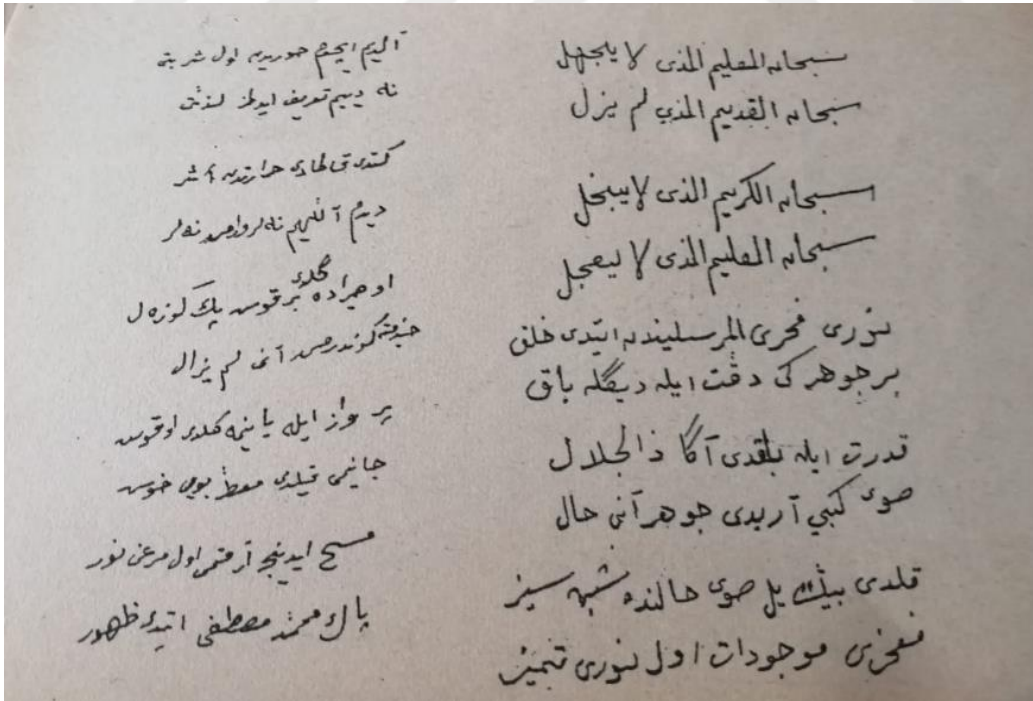 سبحان العليم الذى لا يجهل
سبحان القديم الذي لم يزل
سبحان الكريم الذى لا يبخل
سبحان الحليم الذى لا يعجل
نورى فخرى المرسليندن ايتدى خلق
بر جوهر كى دقت ايله ديڭله باق
قدرت ايله باقدى آڭا ذالجلال
صوى كبي آريدى جوهر آنى حال
قلدى بيڭ يل صوى حالنده شبهه سيز
مفخرى موجودات اول نورى تميز
آليم ايچدم حوريدن اول شربتى
نه دييم تعريف ايدلمز لذتى
كتدى قالمادى حرارتدن اثر
ديدم آڭليم نه لر وارمش نه لر
او حيراده كلدى بر قوش پك كوزه ل
كوندرمش آنى لم يزال
پرواز ايله يانيمه كلدى او قوش
جانيمى قيلدى معطر بويى خوش
مسح ايدينجه آرقمى اول مرغى نور
پاك محمد مصطفى ايتدى ظهور